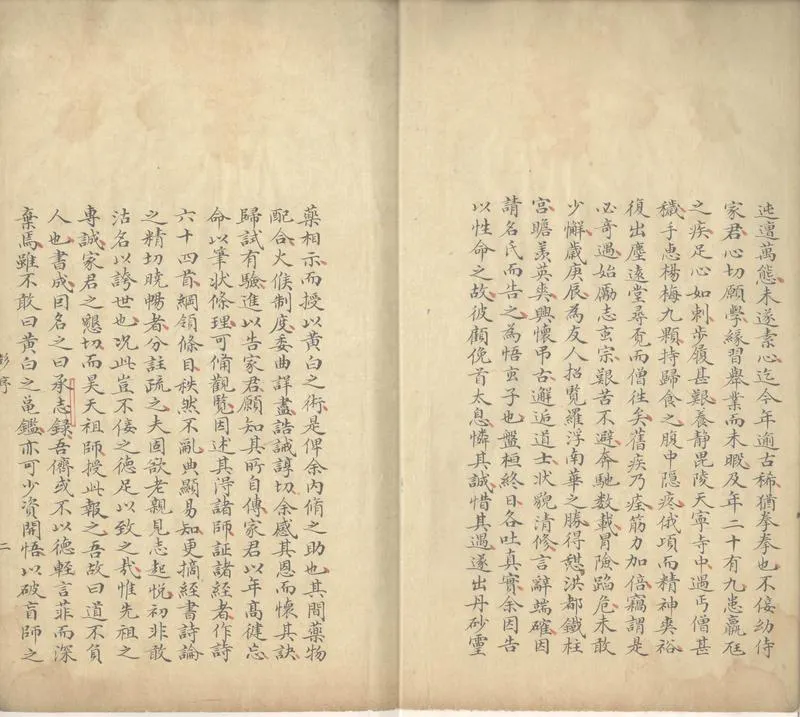 迍邅萬態未遂素心迄今年逾古稀猶拳拳也不佞幼侍
家君心切願學緣習舉業而未暇及年二十有九患羸尫
之疾足心如刺步履甚艱養靜毘陵天寧寺中遇丐僧甚
穢手惠楊梅九顆持歸食之腹中隱疼俄頃而精神爽裕
復出塵遠堂尋覓而僧徃矣舊疾乃痊筋力加倍竊謂是
必奇遇始勵志玄宗艱苦不避奔馳数載冒險蹈危未敢
少懈歲庚辰為友人招覽羅浮南華之勝得憩洪都鐵柱
宮瞻羨英爽興懷弔古邂逅道士狀貌清修言辭端確因
請名氏而告之為悟玄子也盤桓終日各吐真實余因告
以性命之故彼顧俛首太息憐其誠惜其遇遂出丹砂靈
藥相示而授以黃白之術是俾余內脩之助也其間藥物
配合火候制度委曲詳盡誥誡諄切余感其恩而懷其訣
歸試有驗進以告家君願知其所自傳家君以年高健忘
命以筆狀條理可備觀覽因述其淂諸師証諸經者作詩
六十四首綱領條目秩然不亂典顯易知更摘經書詩論
之精切曉暢者分註疏之夫固欲老親見志起悅初非敢
沽名以誇世也况此豈不佞之德足以致之哉惟先祖之
專誠家君之懇切而昊天祖師授此報之吾故曰道不負
人也書成因名之曰承志録吾儕或不以德輕言菲而深
棄焉雖不敢曰黃白之龜鑑亦可少資開悟以破盲師之
彭序
二